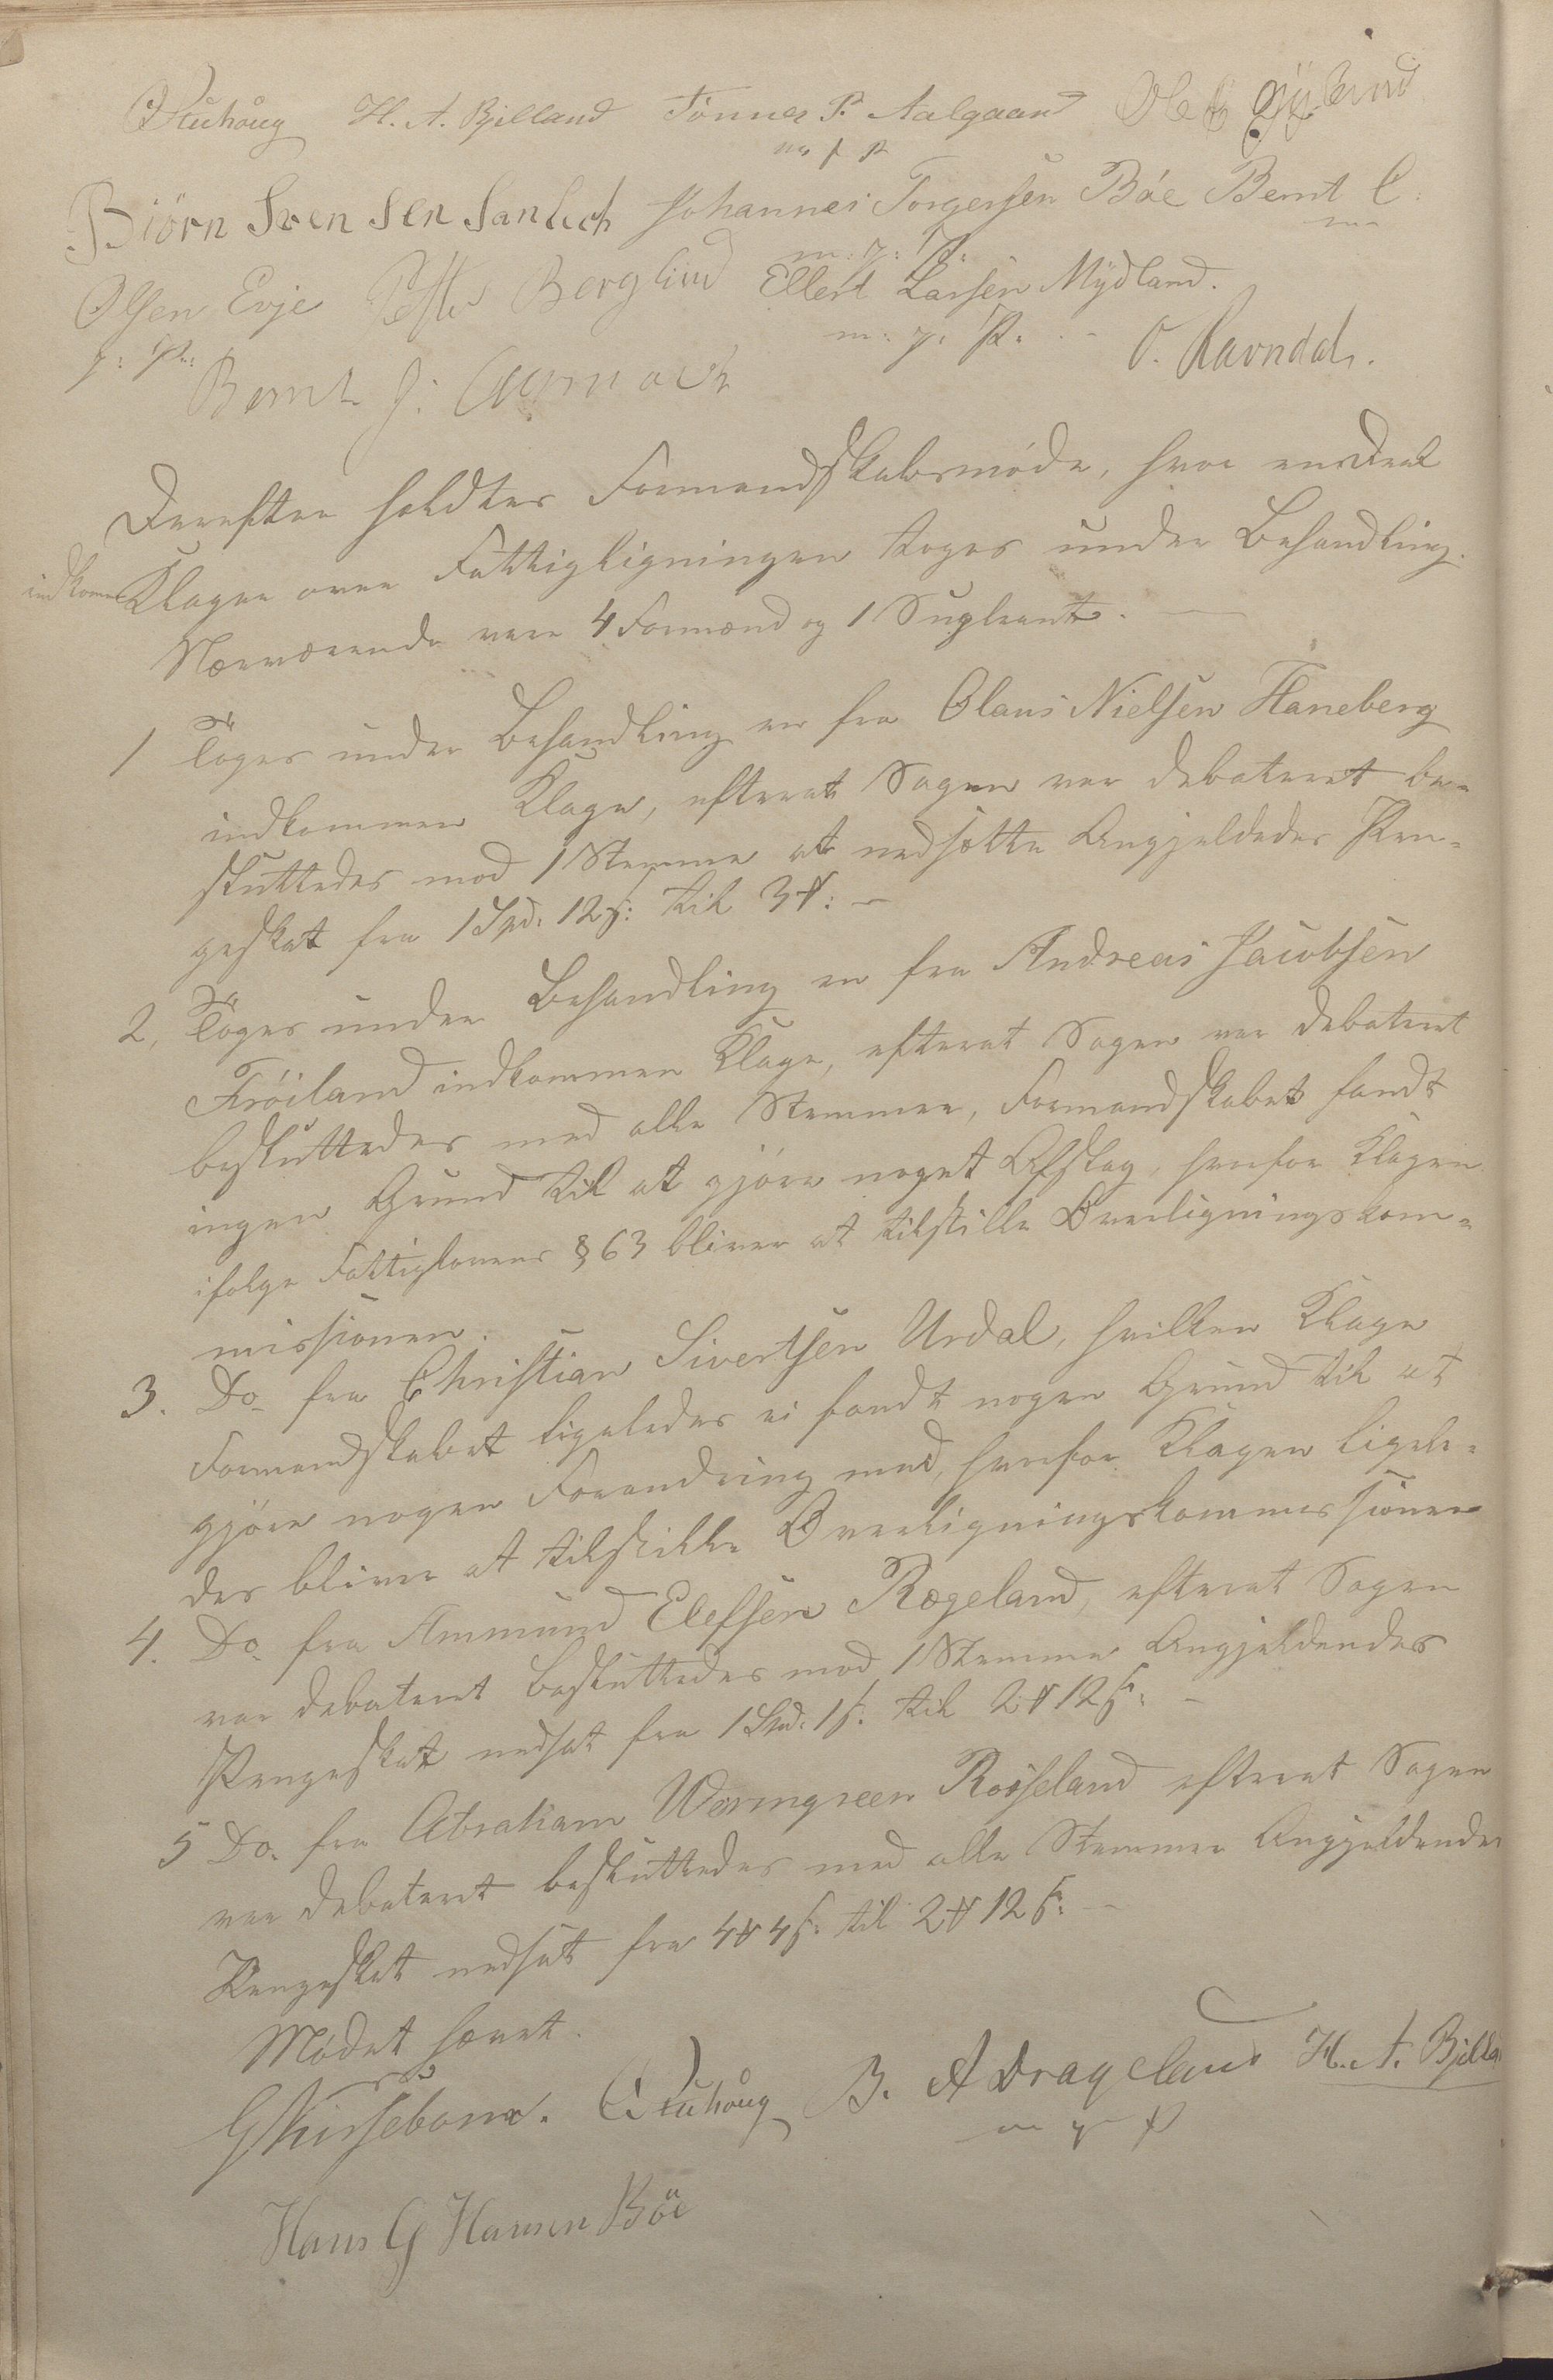 H. A. Bjelland Tönnes P. Aalgaard
Björn Svensen Sanlich Johannes Torgersen Böe Bernt C:
m: p: P:
Olsen Evje Berglind Ellert Larsen Mydland.
p: P: m: p: P: O. Ravndal.
Bernt J:
Derefter holdtes Formandskabsmøde, hvor endeel
indkomne Klager over Fattigligningen toges under Behandling.
Nærværende var 4 Formænd og 1 Supleant. —
1 Toges under Behandling en fra Olaus Nielsen Haneberg
indkommen Klage, efterat Sagen var debateret be-
sluttedes mod 1 Stemme at nedsætte Angjeldedes Pen-
geskat fra 1 Spd. 12 s: til 3 ort: —
2, Toges under Behandling en fra Andreas Jacobsen
Fröiland indkommen Klage, efterat Sagen var debateret
besluttedes med alle Stemmer, Formandskabet fandt
ingen Grund til at gjøre noget Afslag, hvorfor Klagen
ifølge Fattiglovens § 63 bliver at tilstille Overligningskom-
missionen.
3. Do fra Christian Sivertsen Urdal, hvilken Klage
Formandskabet ligeledes ei fandt nogen Grund til at
gjøre nogen Forandring med, hvorfor Klagen ligele-
des bliver at tilstille Overligningskommissionen
4. Do. fra Ammund Elefsen Rægeland, efterat Sagen
var debateret besluttedes mod 1 Stemme Angjeldendes
Pengeskat nedsat fra 1 Spd. 1 s. til 2 ort 12 s: —
5 Do. fra Abraham Wormgreen Rosseland efterat Sagen
var debateret besluttedes med alle Stemmer Angjeldendes
Pengeskat nedsat fra 4 ort 4 s. til 2 ort 12 s: —
Mødet hævet.
G Kirsebom. B. A Drageland H. A. Bjella
m p P
Hans G Hansen Böe